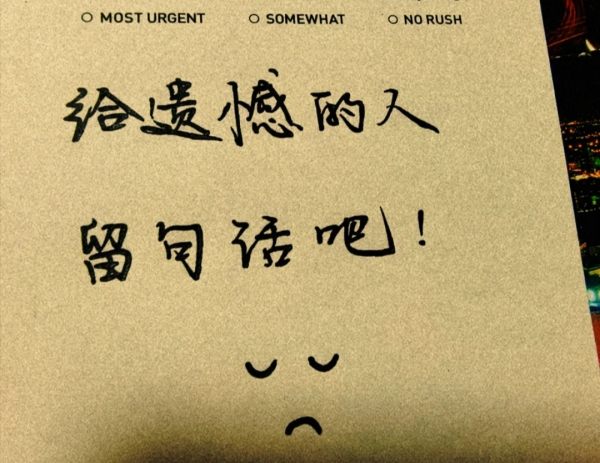 MOST URGENT SOMEWHAT NO RUSH
给遗憾的人
留句话吧！